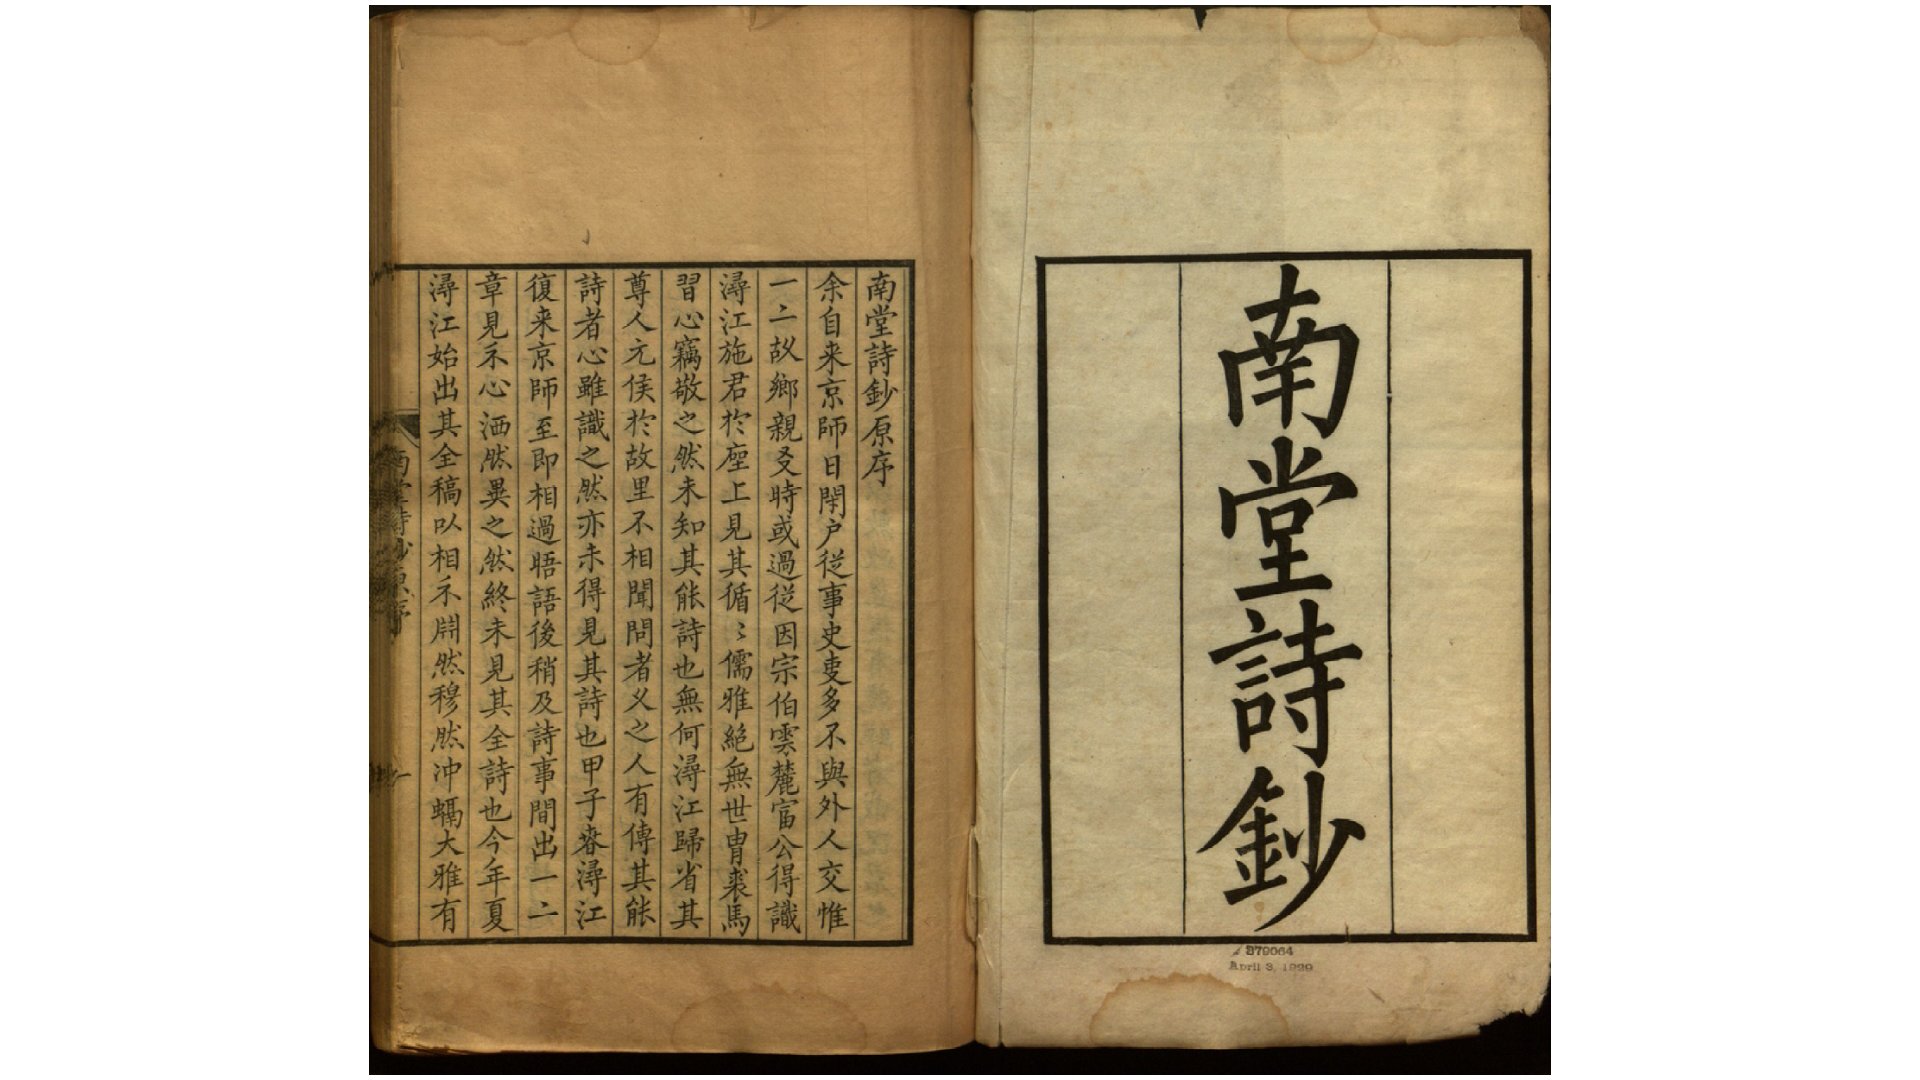 南堂詩鈔
379064
April 3, 1929
南堂詩鈔原序
余自来京師日閉户從事史㕜多不與外人交惟
一二故鄉親㕛時或過從因宗伯雲麓富公得識
潯江施君於座上見其循〻儒雅絶無世胄裘馬
習心竊敬之然未知其能詩也無何潯江歸省其
尊人元侯於故里不相聞問者乂之人有傳其能
詩者心雖識之然亦未得見其詩也甲子春潯江
復来京師至即相過晤語後稍及詩事間出一二
章見示心洒然異之然終未見其全詩也今年夏
潯江始出其全稿以相示閒然穆然冲瀜大雅有
南堂詩鈔原序
一